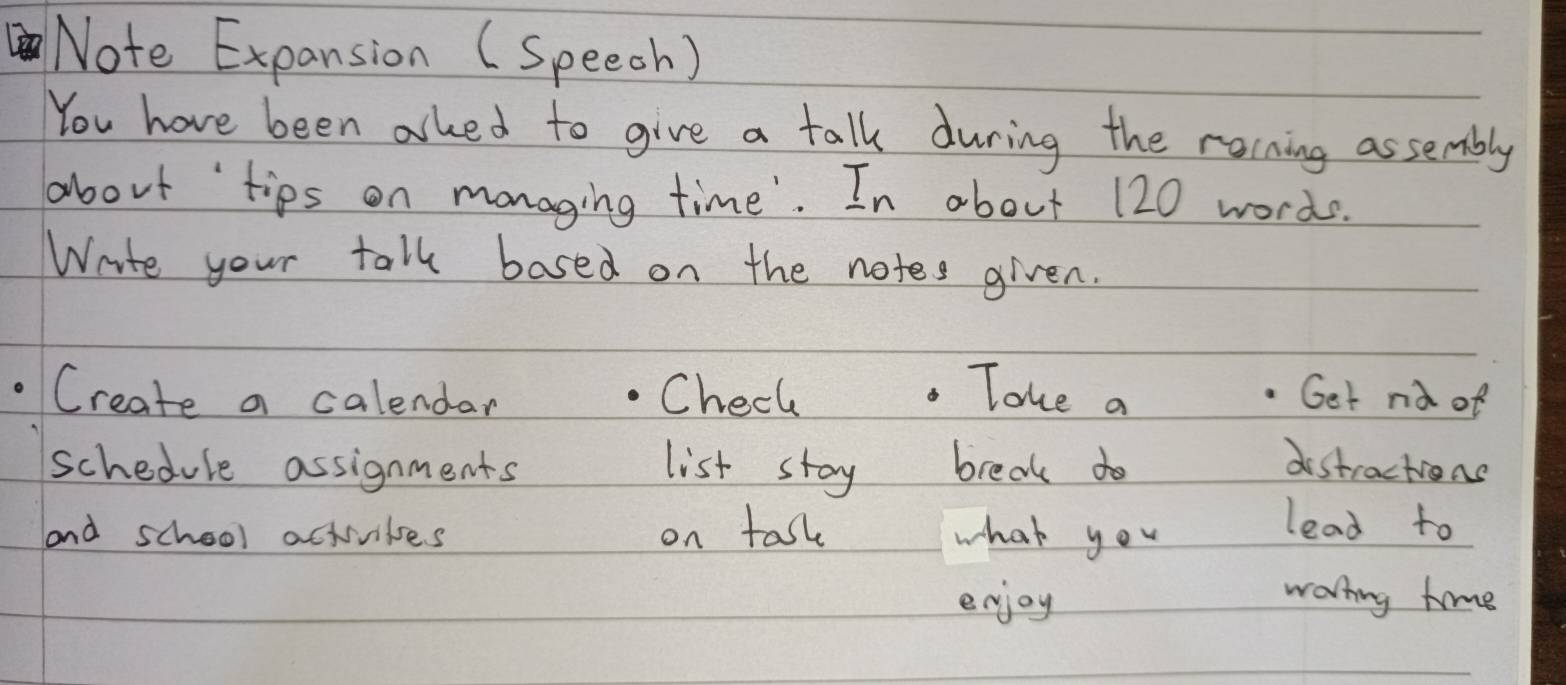 Note Expansion (Speech)
You have been asked to give a talk during the morning assembly
about 'tips on managing time'. In about 120 words.
Write your talk based on the notes given.
• Create a calendar • Check • Take a • Get rid of
schedule assignments list stay break do distractions
and school activities on task what you lead to
enjoy wasting time